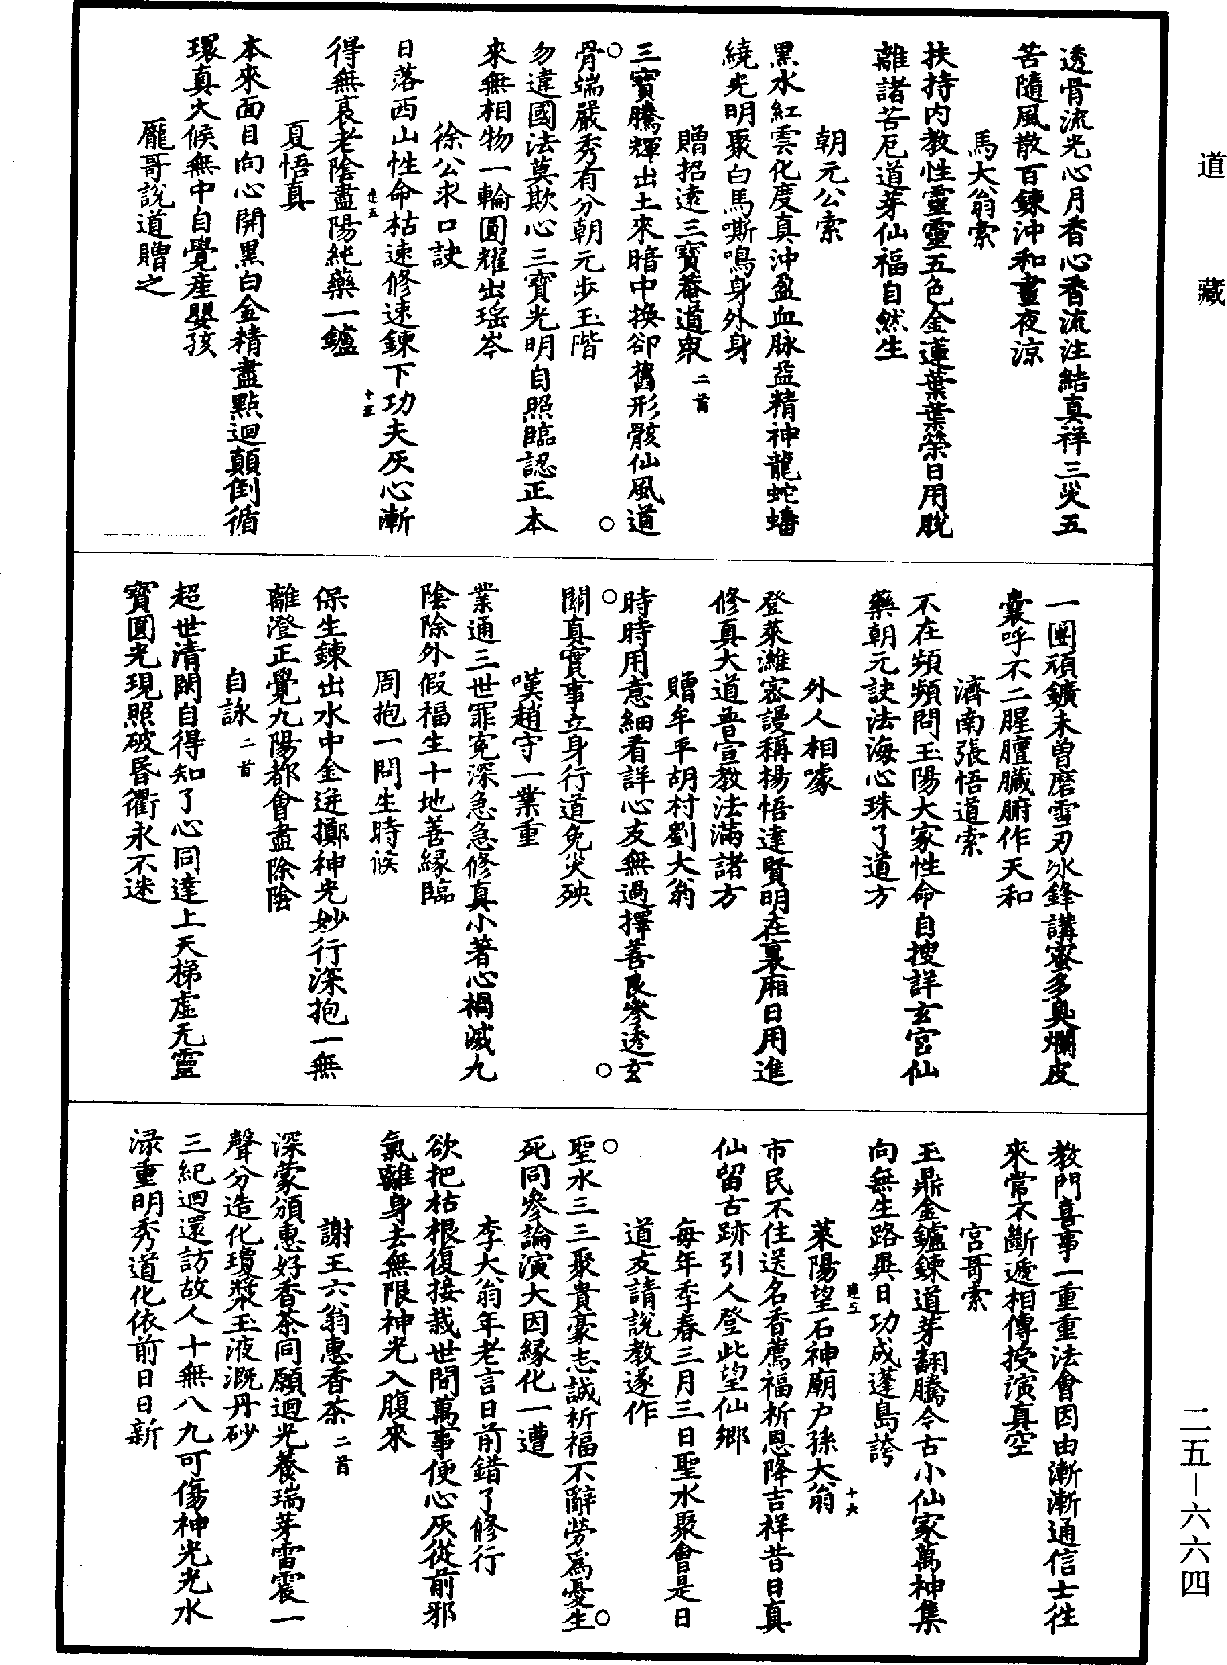 道藏
透骨流光心月香心香流注結真祥三災五
苦隨風散百鍊沖和晝夜涼
馬大翁索
扶持内教性靈靈五色金蓮葉葉榮日用脫
離諸苦厄道芽仙福自然生
朝元公索
黑水紅雲化度真沖盈血脉益精神龍蛇蟠
繞光明聚白馬嘶鳴身外身
贈招遠三寶菴道衆二首
三寶騰輝出土來暗中換卻舊形骸仙風道
骨端嚴秀有分朝元步玉階
○
勿違國法莫欺心三寶光明自照臨認正本
來無相物一輪圓耀出瑤岑
徐公求口訣
日落西山性命枯速修速鍊下功夫灰心漸
得無衰老陰盡陽純藥一鑪
十五
夏悟真
本來面目向心開黑白金精盡點迴顛倒循
環真火候無中自覺産嬰孩
龐哥說道贈之
一團頑鑛未曾磨雪刃冰鋒講蜜多臭爛皮
囊呼不二腥膻臟腑作天和
濟南張悟道索
不在頻頻問玉陽大家性命自搜詳玄宫仙
藥朝元訣法海心珠了道方
外人相㨿
登萊濰密謾稱楊悟達賢明在裏廂日用進
修真大道普宣教法滿諸方
贈牟平胡村劉大翁
時時用意細看詳心友無過擇善良參透玄
關真實事立身行道免災殃
○
嘆趙守一業重
業通三世罪寃深急急修真小著心禍滅九
陰除外假福生十地善緣臨
周抱一問生時候
保生鍊出水中金迸擲神光妙行深抱一無
離澄正覺九陽都會盡除陰
自詠二首
超世清閑自得知了心同達上天梯虛无靈
寶圓光現照破昏衢永不迷
教門喜事一重重法會因由漸漸通信士徃
來常不斷遞相傳授演真空
宫哥索
玉鼎金鑪鍊道芽翻騰今古小仙家萬神集
向無生路異日功成蓬島誇
萊陽望石神廟户孫大翁
十六
市民不住送名香薦福祈恩降吉祥昔日真
仙留古跡引人登此望仙鄉
每年季春三月三日聖水聚會是日
道友請說教遂作
聖水三三聚貴豪志誠祈福不辭勞爲憂生
死同參論演大因緣化一遭
○
李大翁年老言日前錯了修行
欲把枯根復接栽世間萬事便心灰從前邪
氣離身去無限神光入腹來
謝王六翁惠香茶二首
深蒙頒惠好香茶同願迴光養瑞芽雷震一
聲分造化瓊漿玉液溉丹砂
三紀迴還訪故人十無八九可傷神光光水
渌重明秀道化依前日日新
二五—六六四